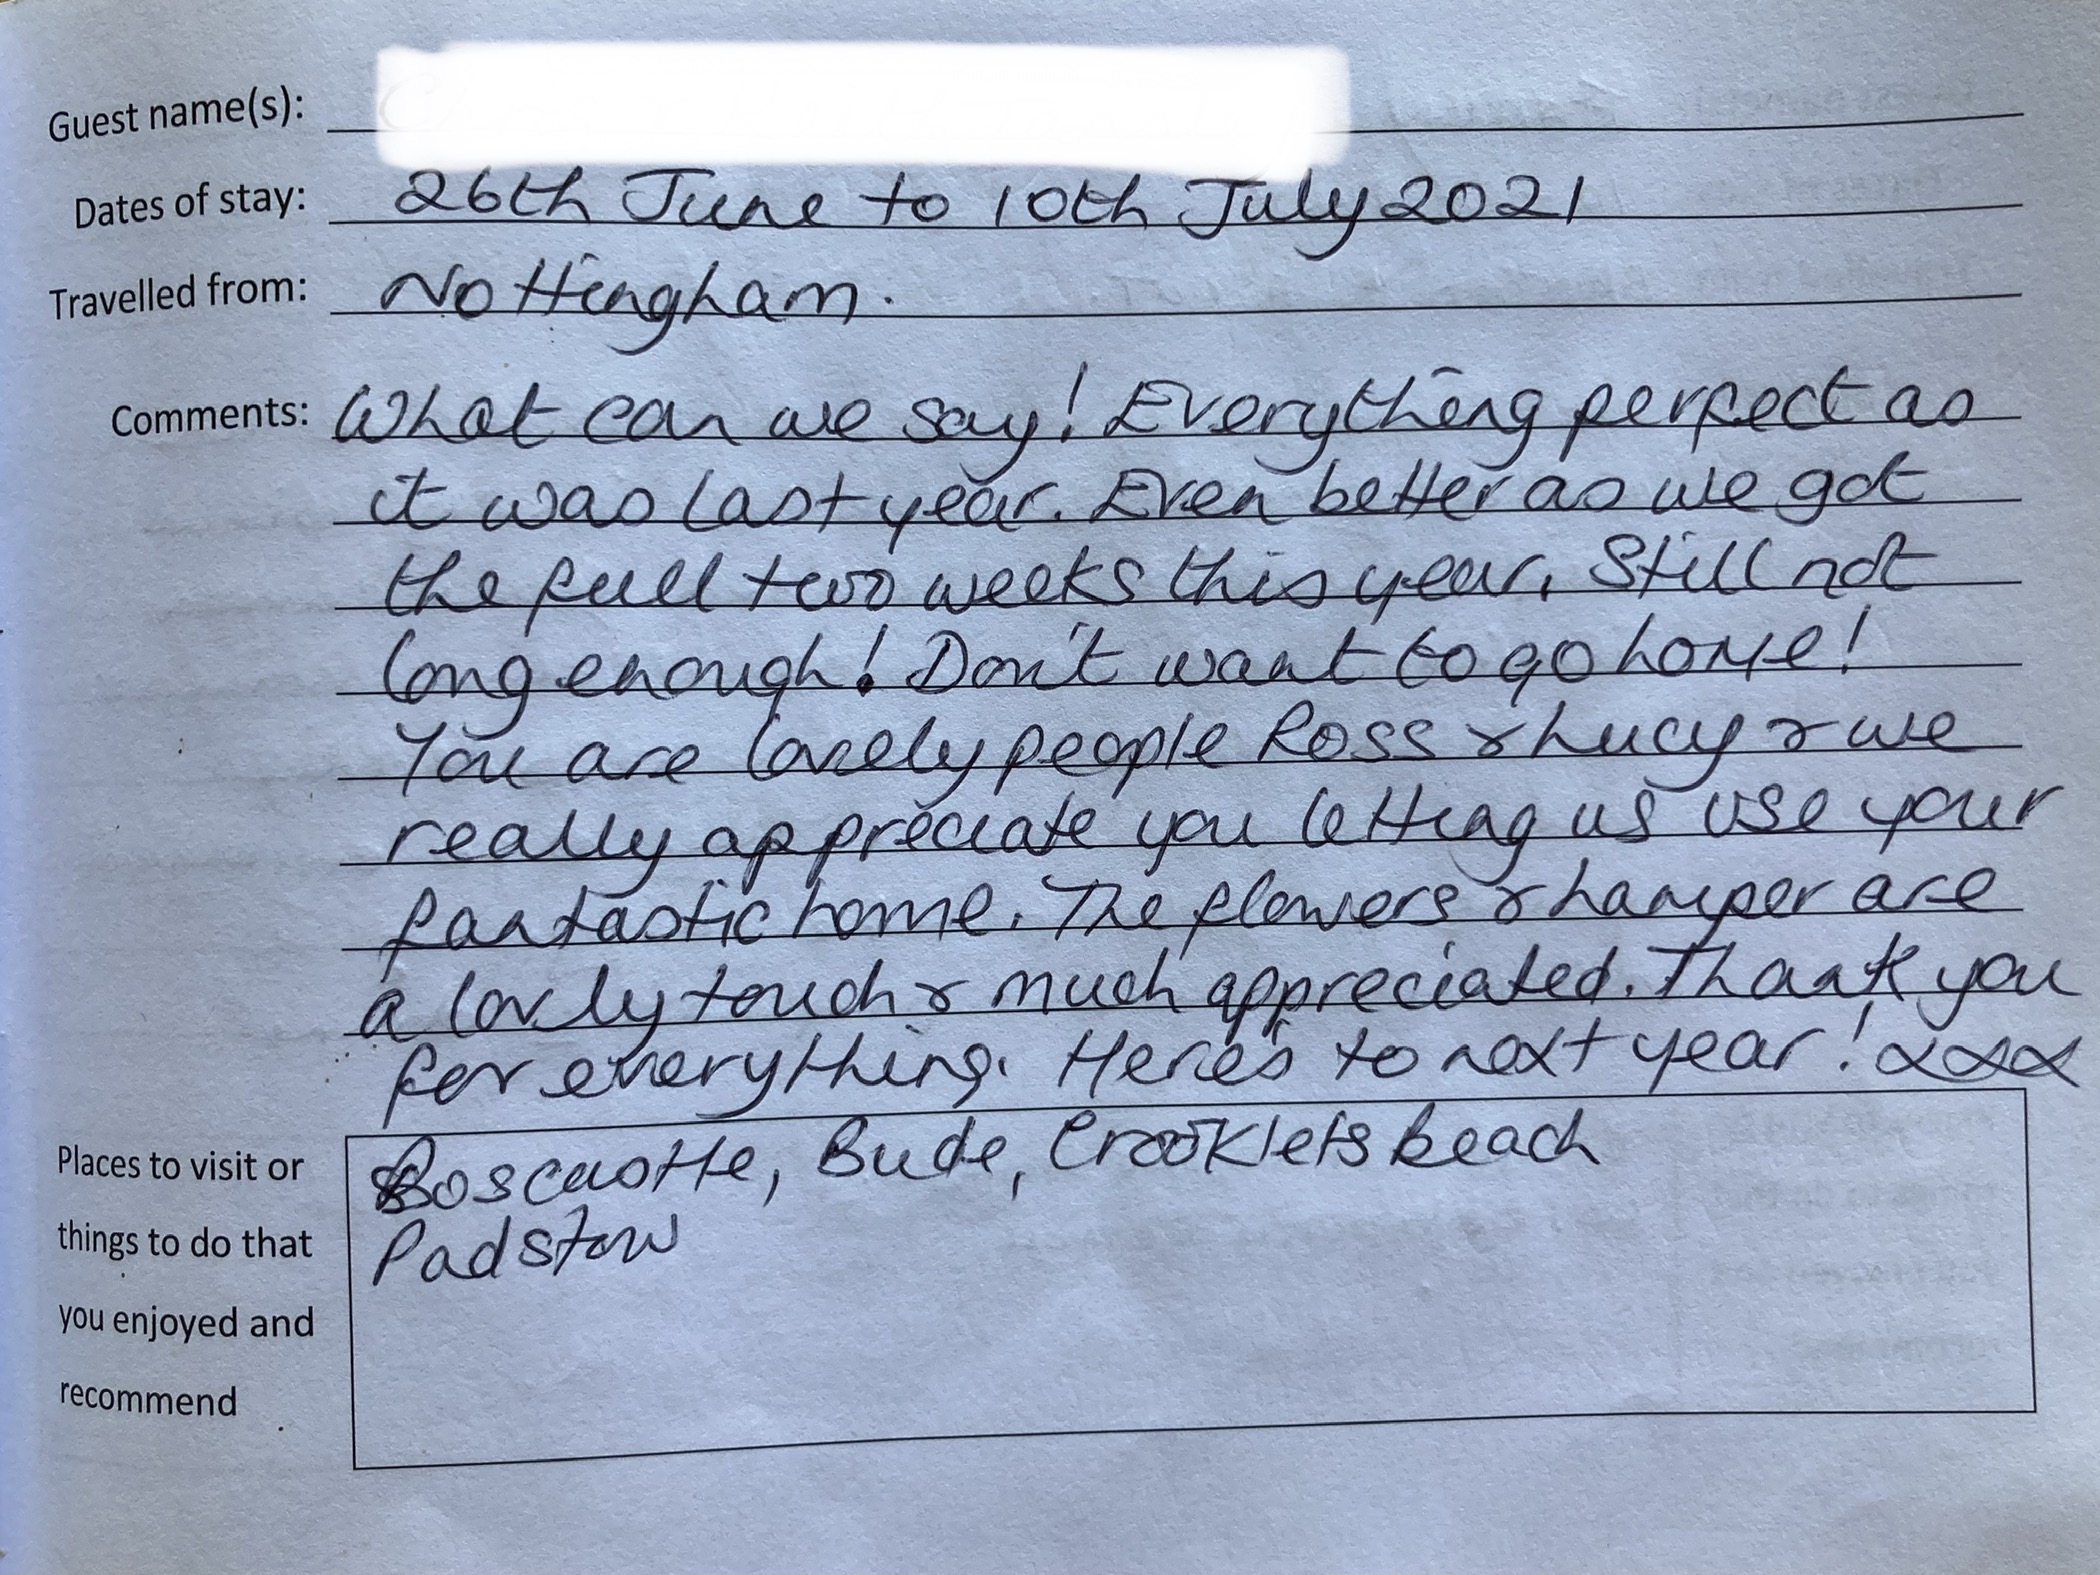 Guest name(s):
Dates of stay: 26th June to 10th July 2021
Travelled from: Nottingham.
Comments: What can we say! Everything perfect as
it was last year. Even better as we got
the full two weeks this year. Still not
long enough! Don't want to go home!
You are lovely people Ross & Lucy & we
really appreciate you letting us use your
fantastic home. The flowers & hamper are
a lovely touch & much appreciated. Thank you
for everything. Here's to next year! xxx
Places to visit or Boscastle, Bude, Crooklets beach
things to do that Padstow
you enjoyed and
recommend